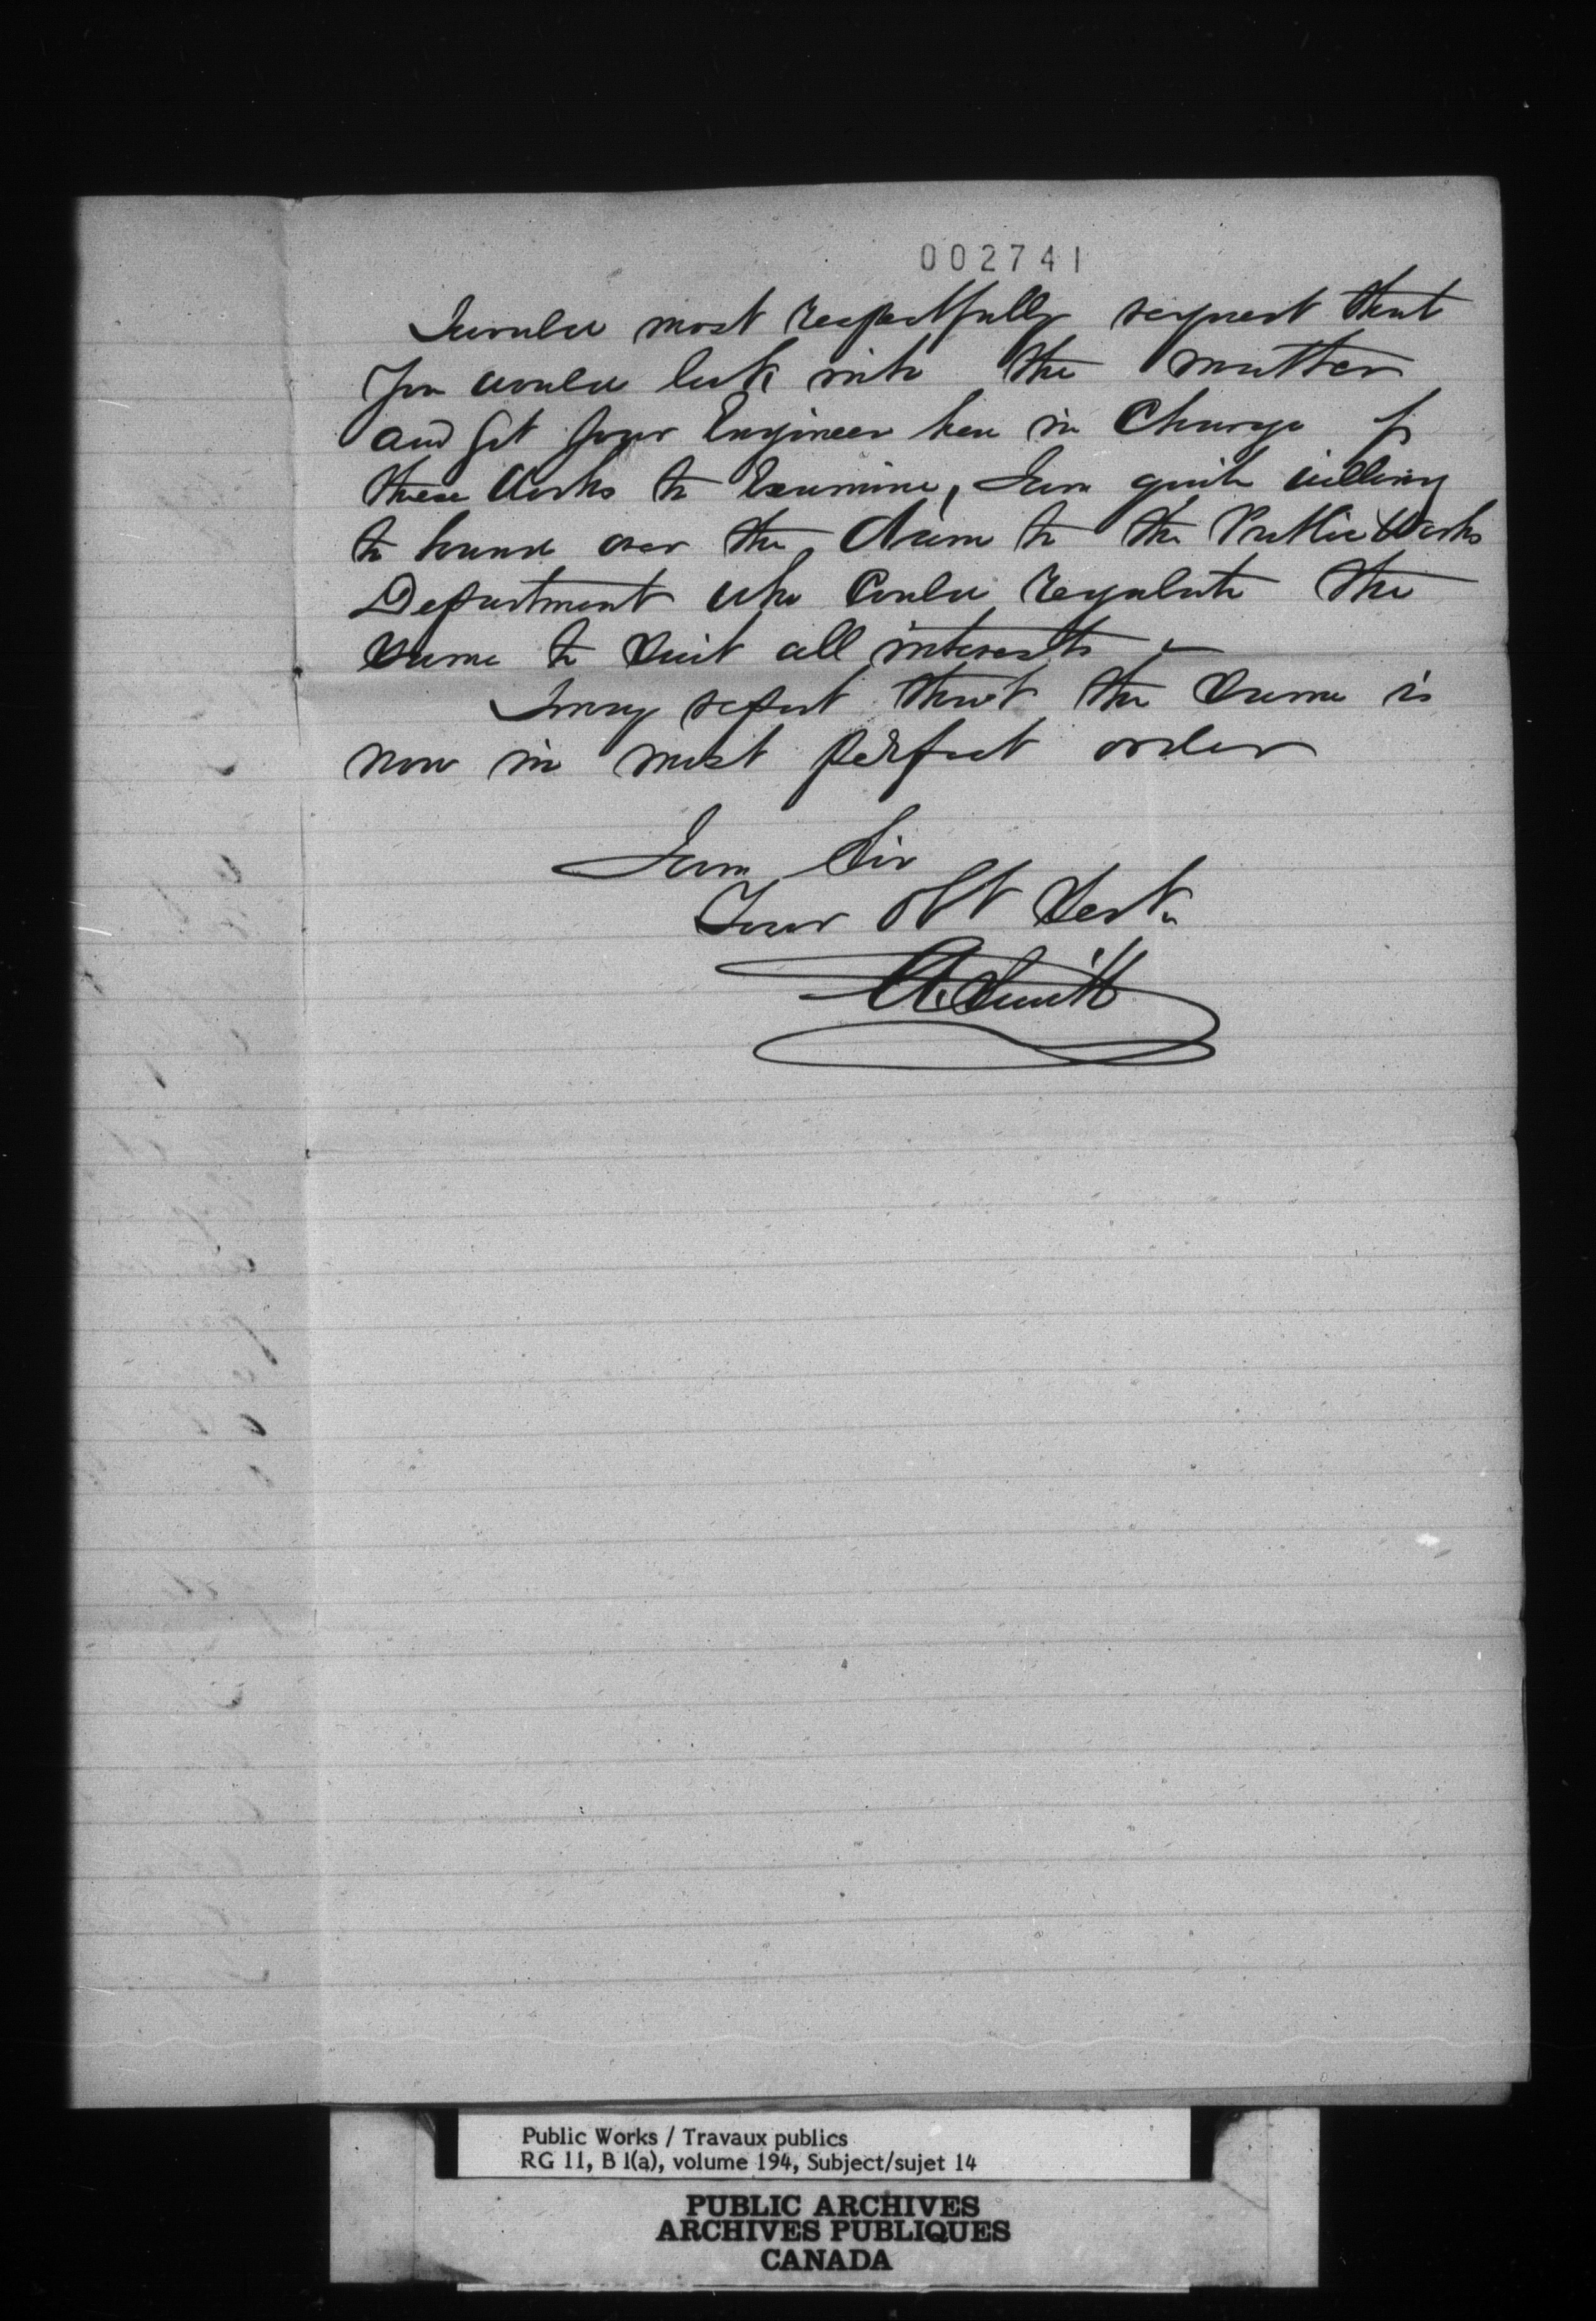 002741
I would most respectfully request that
You would look into the matter
and get your Engineer here in Charge of
these Works to Examine, I am quite willing
to hand over the Dam to the Public Works
Department who Could regulate the
same to Suit all interests
I may report that the Dam is
now in most perfect order
I am Sir
Your Obt Sert.
A. Smith
Public Works / Travaux publics
RG 11, B 1(a), volume 194, Subject/sujet 14
PUBLIC ARCHIVES
ARCHIVES PUBLIQUES
CANADA